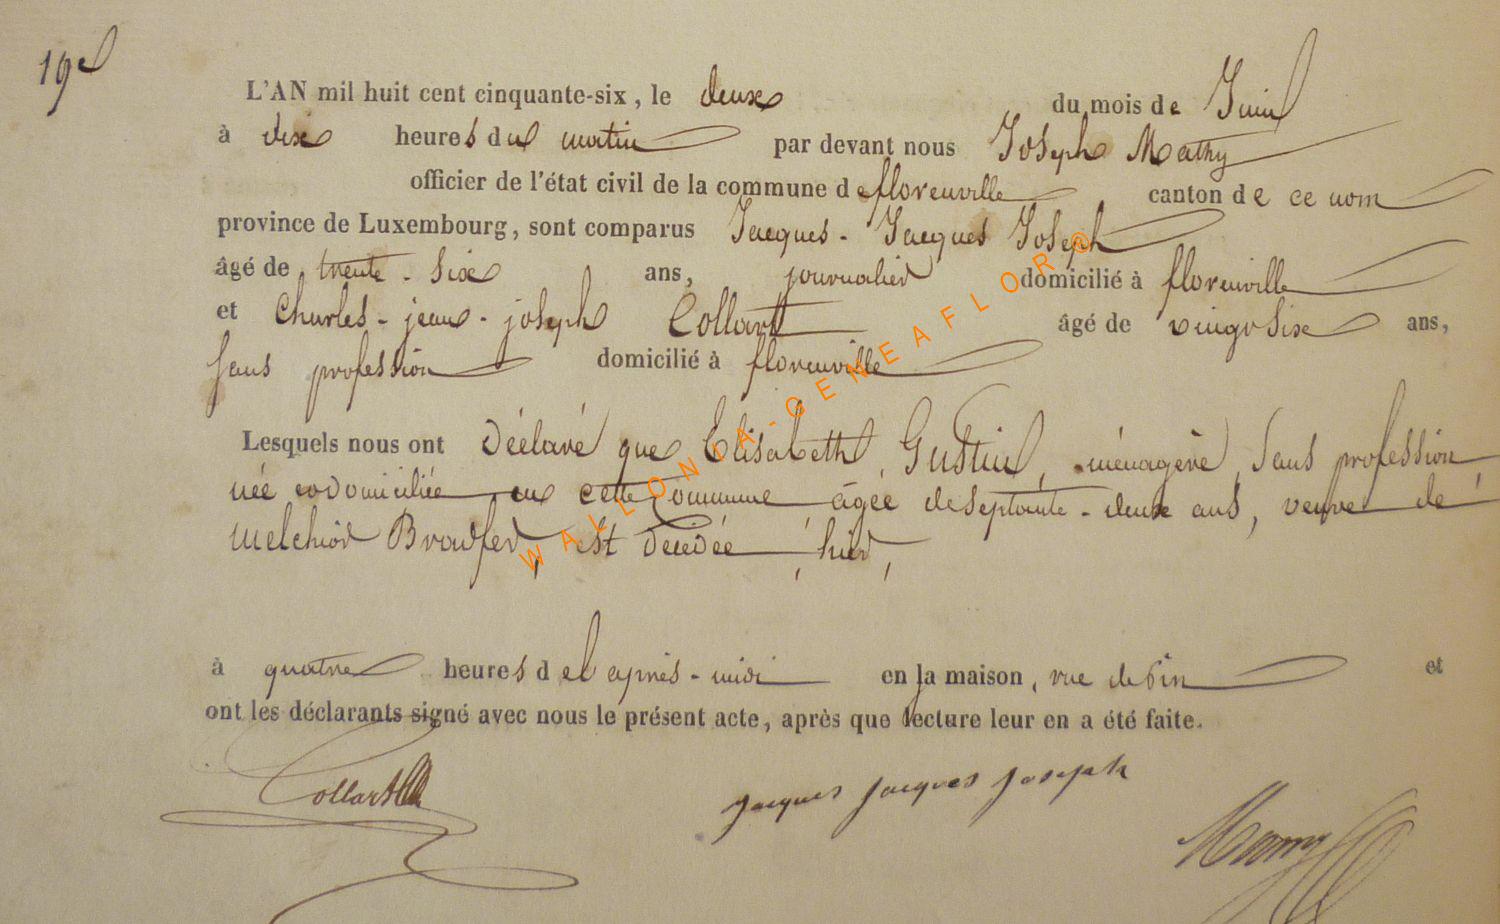 19e
L'AN mil huit cent cinquante-six, le deux du mois de Juin
à dix heures du matin par devant nous Joseph Mathy
officier de l'état civil de la commune de florenville canton de ce nom
province de Luxembourg, sont comparus Jacques - Jacques Joseph
âgé de trente - six ans, journalier domicilié à florenville
et Charles - jean - joseph Collart âgé de vingt six ans,
sans profession domicilié à florenville
Lesquels nous ont déclaré que Elisabeth Gustin, ménagère, sans profession
née et domiciliée en cette commune âgée de septante - deux ans, veuve de
Melchior Bradfer, est décédée, hier,
à quatre heures de l après - midi en la maison, rue de et
ont les déclarants signé avec nous le présent acte, après que lecture leur en a été faite.
Collart Jacques Jacques Joseph
WALLONIA-GENEAFLOR@